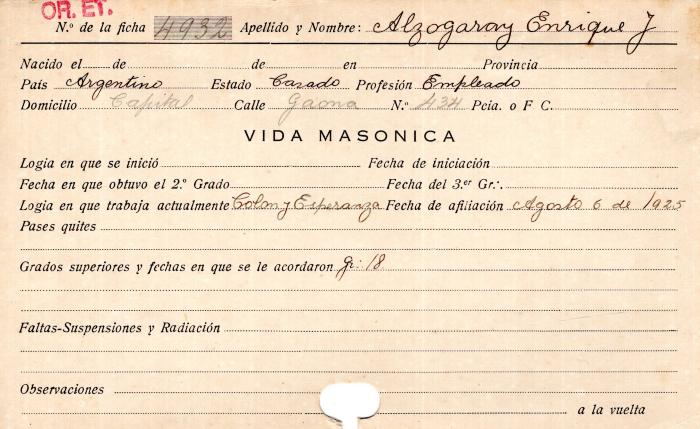 OR. ET.
N.º de la ficha 4932 Apellido y Nombre: Alzogaray Enrique J
Nacido el de de en Provincia
País Argentino Estado Casado Profesión Empleado
Domicilio Capital Calle Gaona N.º 434 Pcia. o F C.
VIDA MASONICA
Logia en que se inició Fecha de iniciación
Fecha en que obtuvo el 2.º Grado Fecha del 3.er Gr∴
Logia en que trabaja actualmente Colon y Esperanza Fecha de afiliación Agosto 6 de 1925
Pases quites
Grados superiores y fechas en que se le acordaron gr: 18
Faltas-Suspensiones y Radiación
Observaciones
a la vuelta